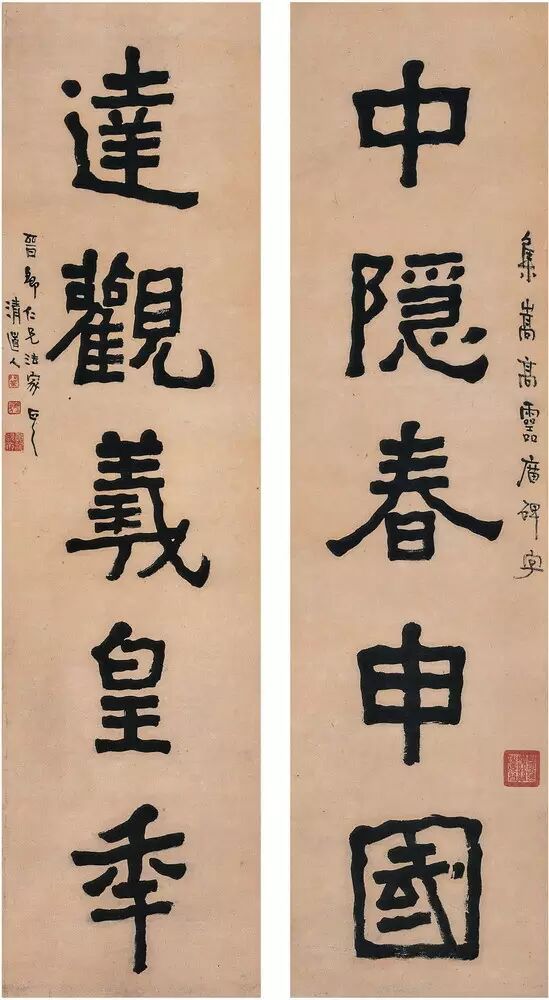 集嵩高靈廟碑字
中隱春申國
達觀羲皇年
晉卿仁兄法家正之
清道人